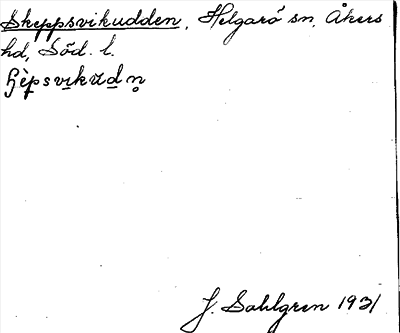 Skeppsvikudden, Helgarö sn, Åkers
hd, Söd. l.
J. Sahlgren 1931